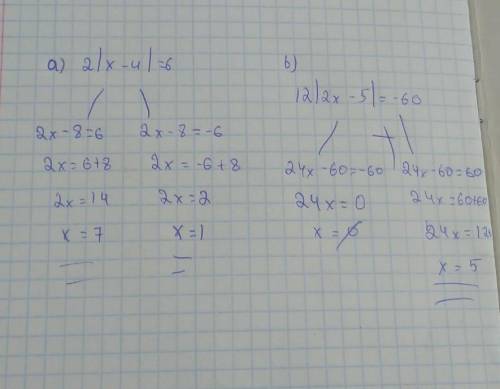 a) 2|x-4|=6
2x-8=6 2x-8=-6
2x=6+8 2x=-6+8
2x=14 2x=2
x=7 x=1
b)
12|2x-5|=-60
24x-60=-60 24x-60=60
24x=0 24x=60+60
x= 24x=120
x=5